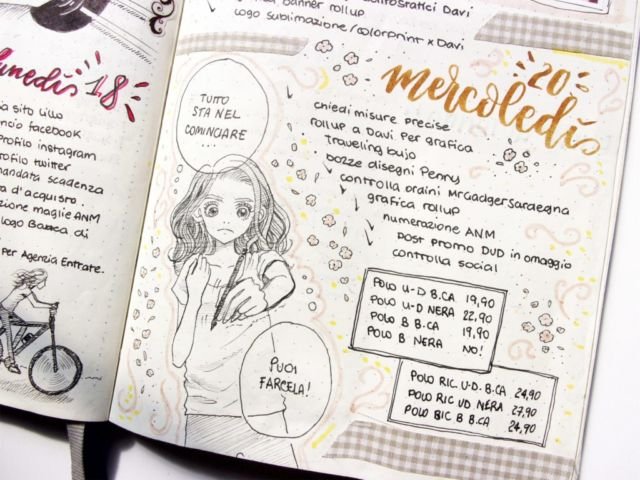 lunedì 18
sito Lillo
facebook
profilo instagram
profilo twitter
mandata scadenza
d'acquisto
zione maglie ANM
logo Banca di
per Agenzia Entrate.
Davi
banner rollup
Logo sublimazione/colorprint x Davi
mercoledì 20
chiedi misure precise
rollup a Davi per grafica
Travelling bujo
bozze disegni Penny
controlla ordini MrGadgetSardegna
grafica rollup
numerazione ANM
post promo DVD in omaggio
controlla social
TUTTO
STA NEL
COMINCIARE
...
PUOI
FARCELA!
POLO U-D B.CA 19,90
POLO U-D NERA 22,90
POLO B B.CA 19,90
POLO B NERA NO!
POLO RIC. U-D. B.CA 24,90
POLO RIC UD NERA 27,90
POLO BIC B B.CA 24,90